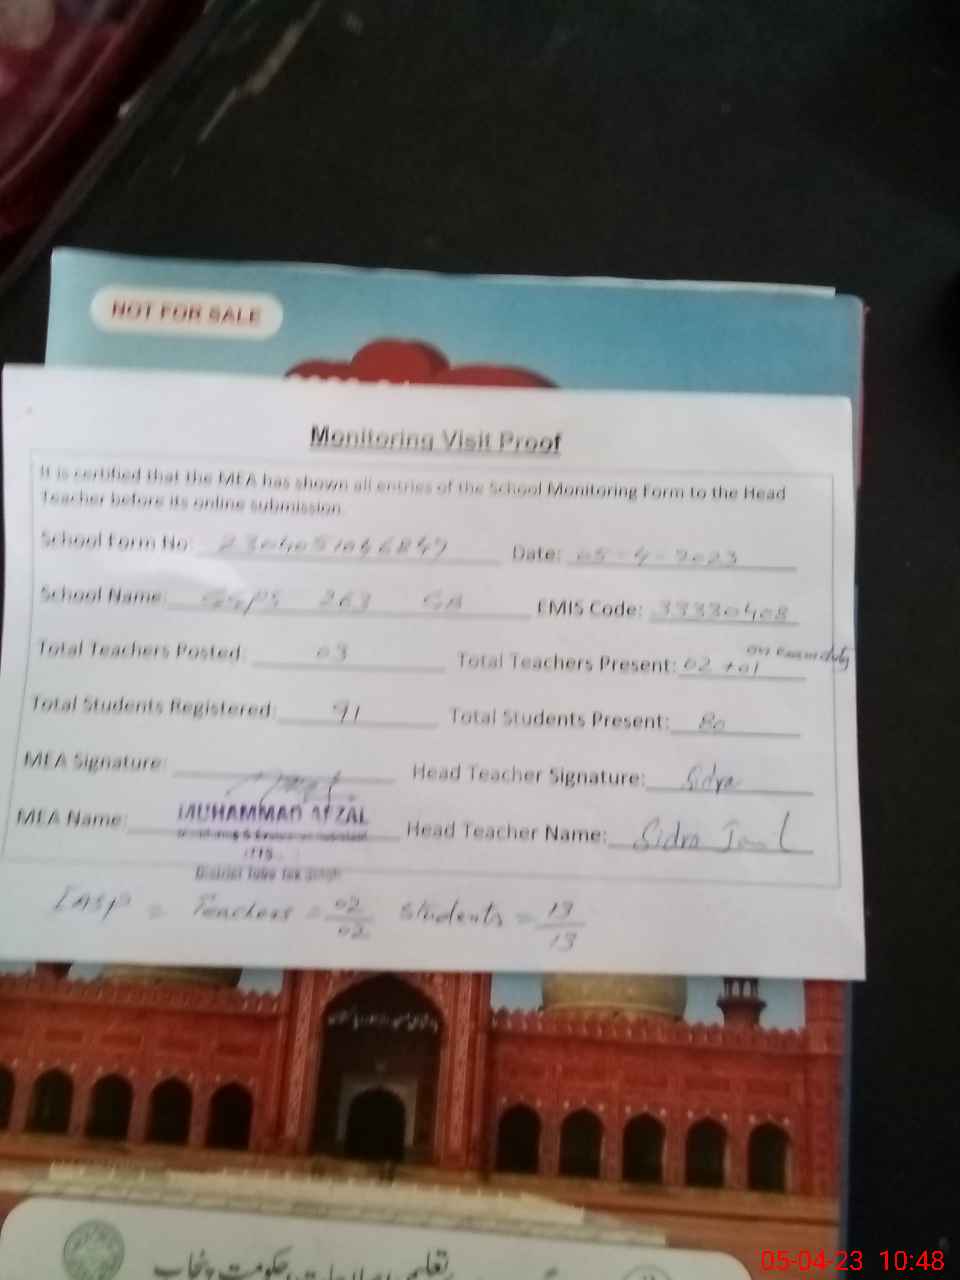 NOT FOR SALE
Monitoring Visit Proof
It is certified that the MEA has shown all entries of the School Monitoring Form to the Head
Teacher before its online submission.
School Form No: Date: 05-4-2023
School Name: GGPS 263 GB EMIS Code: 33330408
Total Teachers Posted: 03 Total Teachers Present: 02 + 01 on exam duty
Total Students Registered: 91 Total Students Present: 80
MEA Signature: Head Teacher Signature: Sidra
MEA Name: MUHAMMAD AFZAL Head Teacher Name: Sidra Jamil
District Toba Tek Singh
Teachers = 02/02 Students = 13/13
05-04-23 10:48